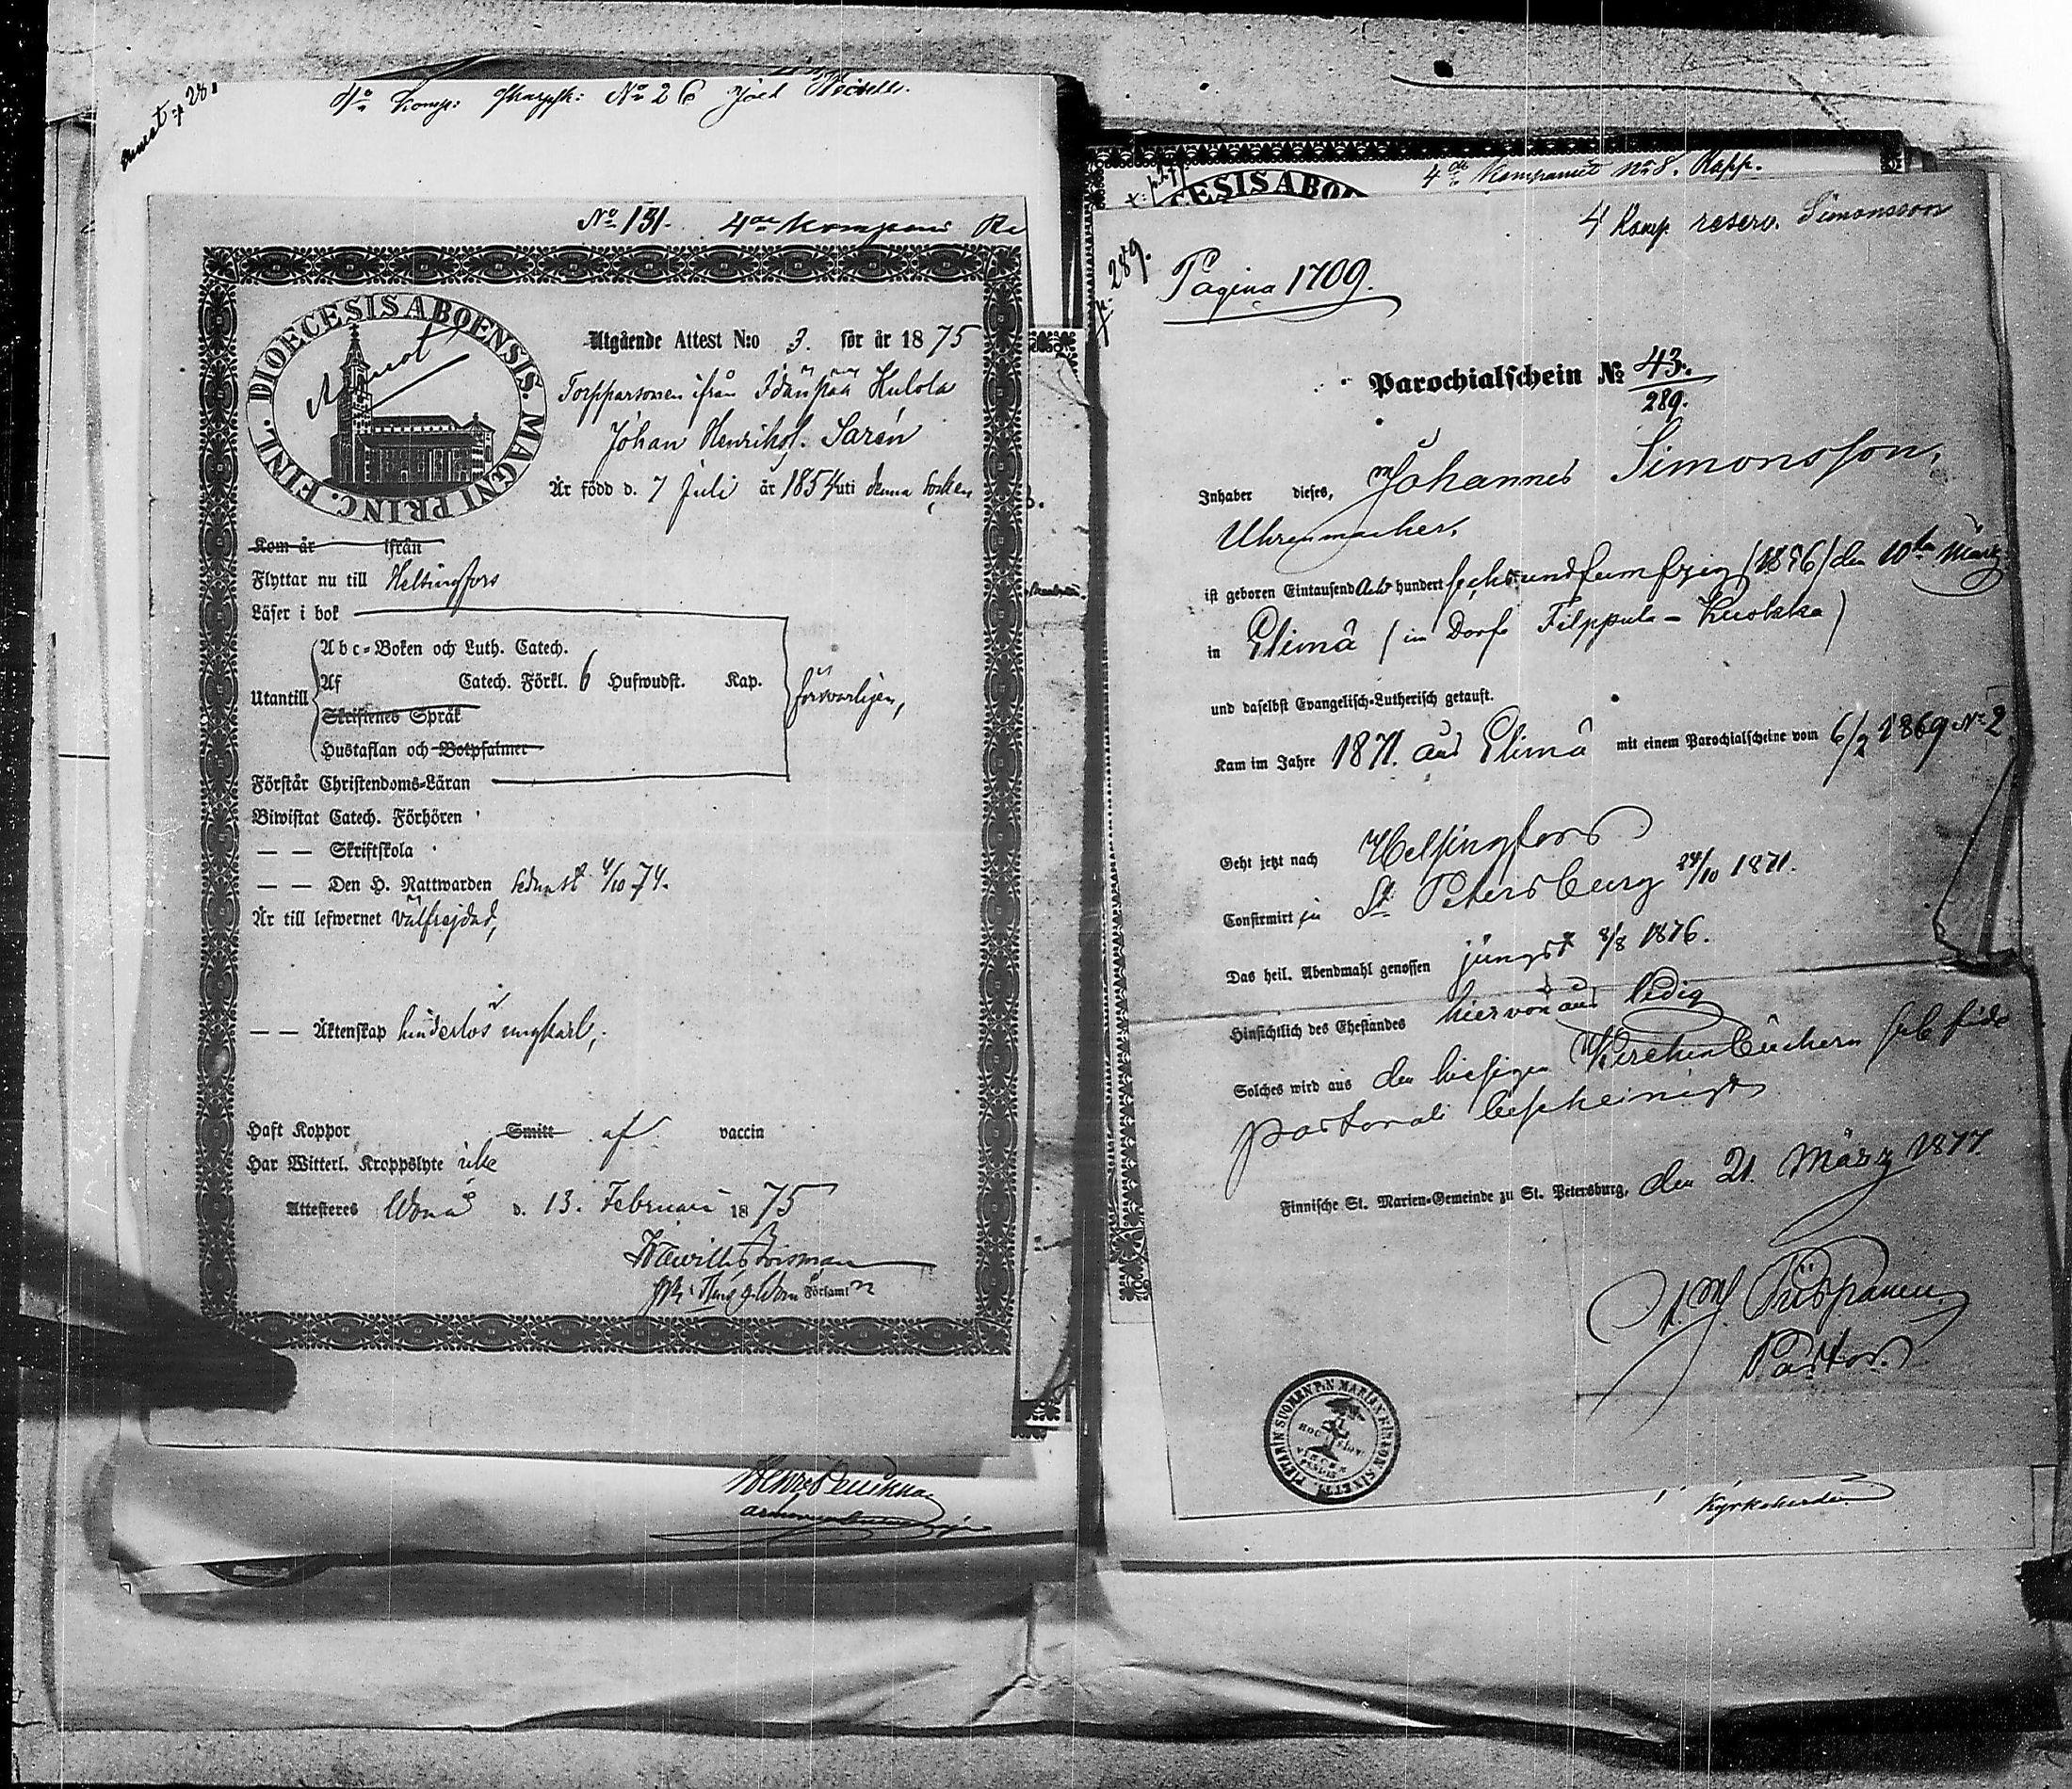 No 26
No 131. 4de Kompani
DIOECESIS ABOENSIS. MAGNI PRINC. FINL.
Utgående Attest N:o 3. för år 1875
Torpparsonen ifrån Hulola
Johan Henriksf. Sarén
Är född d. 7 Juli år 1854 uti denna socken
Kom år ifrån
Flyttar nu till Helsingfors
Läser i bok
Abc-Boken och Luth. Catech.
Utantill Af Catech. Förkl. 6 Hufwudst. Kap. försvarligen,
Skriftenes Språk
Hustaflan och Botpsalmer
Förstår Christendoms-Läran
Biwistat Catech. Förhören
— — Skriftskola
— — Den H. Nattwarden sednast 4/10 74.
Är till lefwernet välfrejdad,
— — Äktenskap hinderlös ungkarl,
Haft Koppor Smitt af vaccin
Har Witterl. Kroppslyte icke
Attesteras d. 13. Februari 1875
Församl
4de Kompaniet No 8. Rapp.
4 Komp reserv. Simonsson
p. 289.
Pagina 1709.
Parochialschein № 43./289.
Inhaber dieses, Johannes Simonsson,
Uhrenmacher,
ist geboren Eintausend Acht hundert sechsundfumfzig (1856) den 10ten März
in Elimä (im Dorfe Filppula - Kuokka)
und daselbst Evangelisch-Lutherisch getauft.
Kam im Jahre 1871. aus Elimä mit einem Parochialscheine vom 6/2 1869 No 2
Geht jetzt nach Helsingfors
Confirmirt zu St. Petersburg 24/10 1871.
Das heil. Abendmahl genossen jüngst 8/8 1876.
Hinsichtlich des Ehestandes hiervon aus ledig
Solches wird aus den hiesigen Kirchenbüchern sub fide
pastorali bescheinigt
Finnische St. Marien-Gemeinde zu St. Petersburg, den 21. März 1877
Pastor.
Kyrkoherde